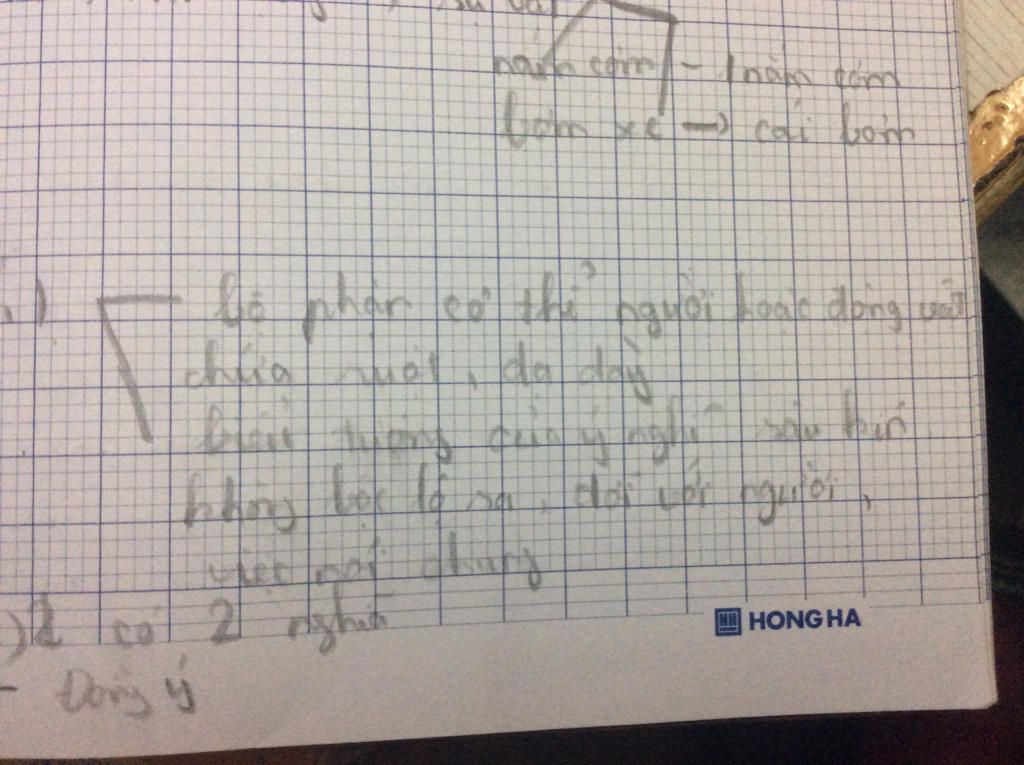 nắm cơm - 1 nắm cơm
bơm xe → cái bơm
bộ phận cơ thể người hoặc động vật
chứa ruột, dạ dày
biểu tượng của ý nghĩ sâu kín
không bộc lộ ra, đối với người,
việc nói chung
có 2 nghĩa
HONG HA
- Đồng ý